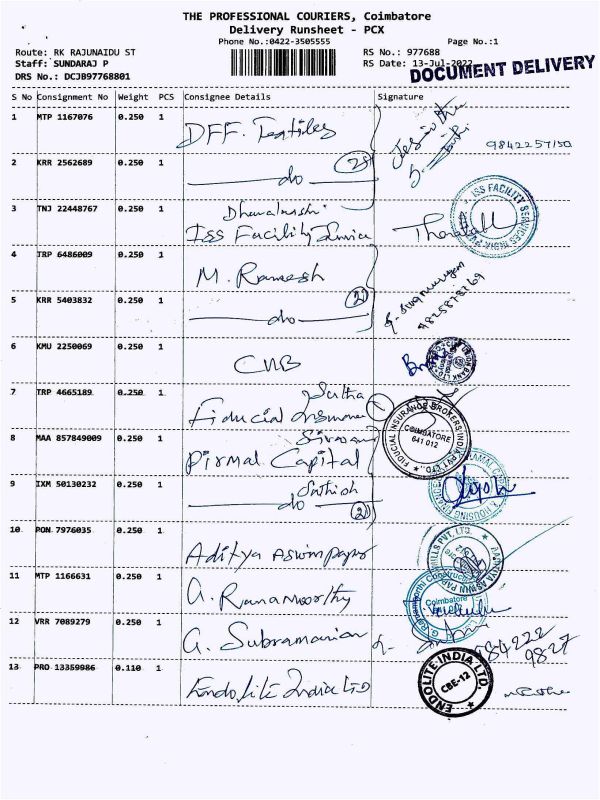 THE PROFESSIONAL COURIERS, Coimbatore
Delivery Runsheet - PCX
Phone No.:0422-3505555 Page No.:1
Route: RK RAJUNAIDU ST RS No.: 977688
Staff: SUNDARAJ P RS Date: 13-Jul-2022
DOCUMENT DELIVERY
DRS No.: DCJB97768801
S No Consignment No Weight PCS Consignee Details Signature
1 MTP 1167076 0.250 1 DFF. Textiles 9842257150
2 KRR 2562689 0.250 1 do 2
3 TNJ 22448767 0.250 1 ISS Facility Service ISS FACILITY SERVICES INDIA PVT
4 TRP 6486009 0.250 1 M. Ramesh
5 KRR 5403832 0.250 1 do 2
6 KMU 2250069 0.250 1 CUB
7 TRP 4665189 0.250 1 Sutha
Fiducial Insurance 1 FIDUCIAL INSURANCE BROKERS INDIA PVT. LTD., COIMBATORE 641 012
8 MAA 857849009 0.250 1 Pirmal Capital
9 IXM 50130232 0.250 1 Sathish
do 2
10 PON 7976035 0.250 1 Aditya Aswin paper MILLS PVT. LTD.
11 MTP 1166631 0.250 1 G. Ramamoorthy Coimbatore
12 VRR 7089279 0.250 1 G. Subramanian 984222
9827
13 PRO 13359986 0.110 1 Endolite India LTD ENDOLITE INDIA LTD. CBE-12